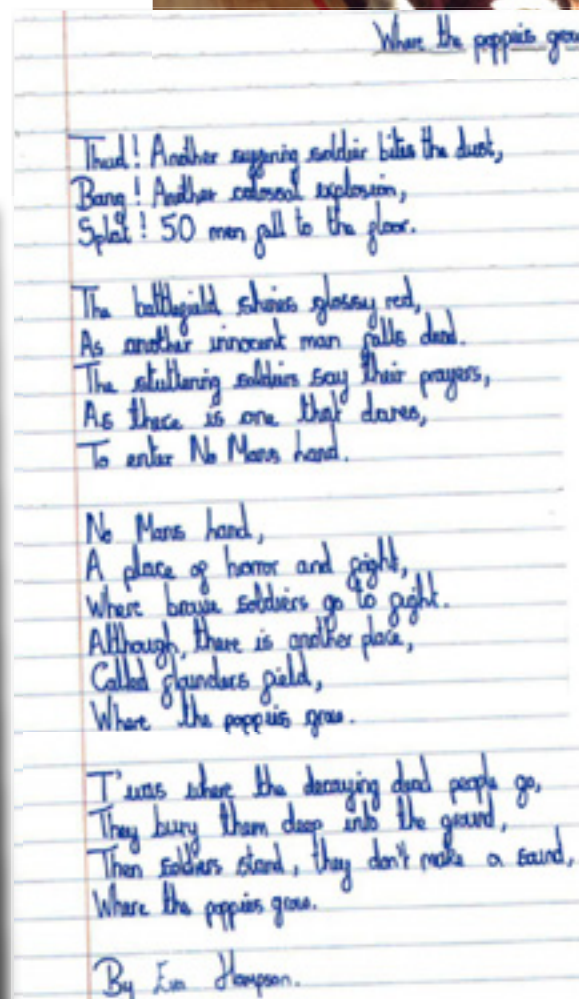 Where the poppies grow
Thud! Another suffering soldier bites the dust,
Bang! Another colossal explosion,
Splat! 50 men fall to the floor.
The battlefield shines glossy red,
As another innocent man falls dead.
The stuttering soldiers say their prayers,
As there is one that dares,
To enter No Mans Land.
No Mans Land,
A place of horror and fright,
Where brave soldiers go to fight.
Although, there is another place,
Called flounders field,
Where the poppies grow.
T'was where the decaying dead people go,
They bury them deep into the ground,
Then soldiers stand, they don't make a sound,
Where the poppies grow.
By Hampson.